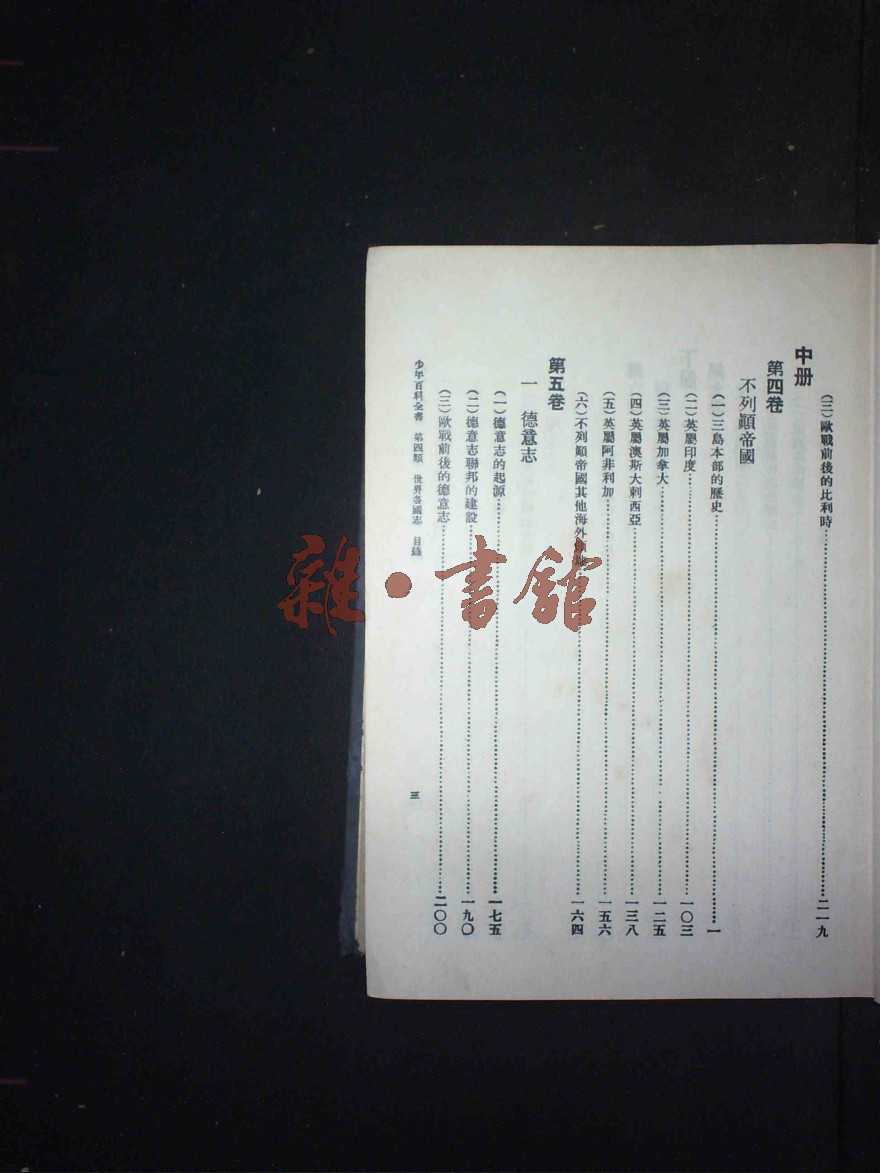 (三)歐戰前後的比利時……二一九
中册
第四卷
不列顚帝國
(一)三島本部的歷史……一
(二)英屬印度……一〇三
(三)英屬加拿大……一二五
(四)英屬澳斯大剌西亞……一三八
(五)英屬阿非利加……一五六
(六)不列顚帝國其他海外……一六四
第五卷
一 德意志
(一)德意志的起源……一七五
(二)德意志聯邦的建設……一九〇
(三)歐戰前後的德意志……二〇〇
少年百科全書 第四類 世界各國志 目錄
三
雜·書館